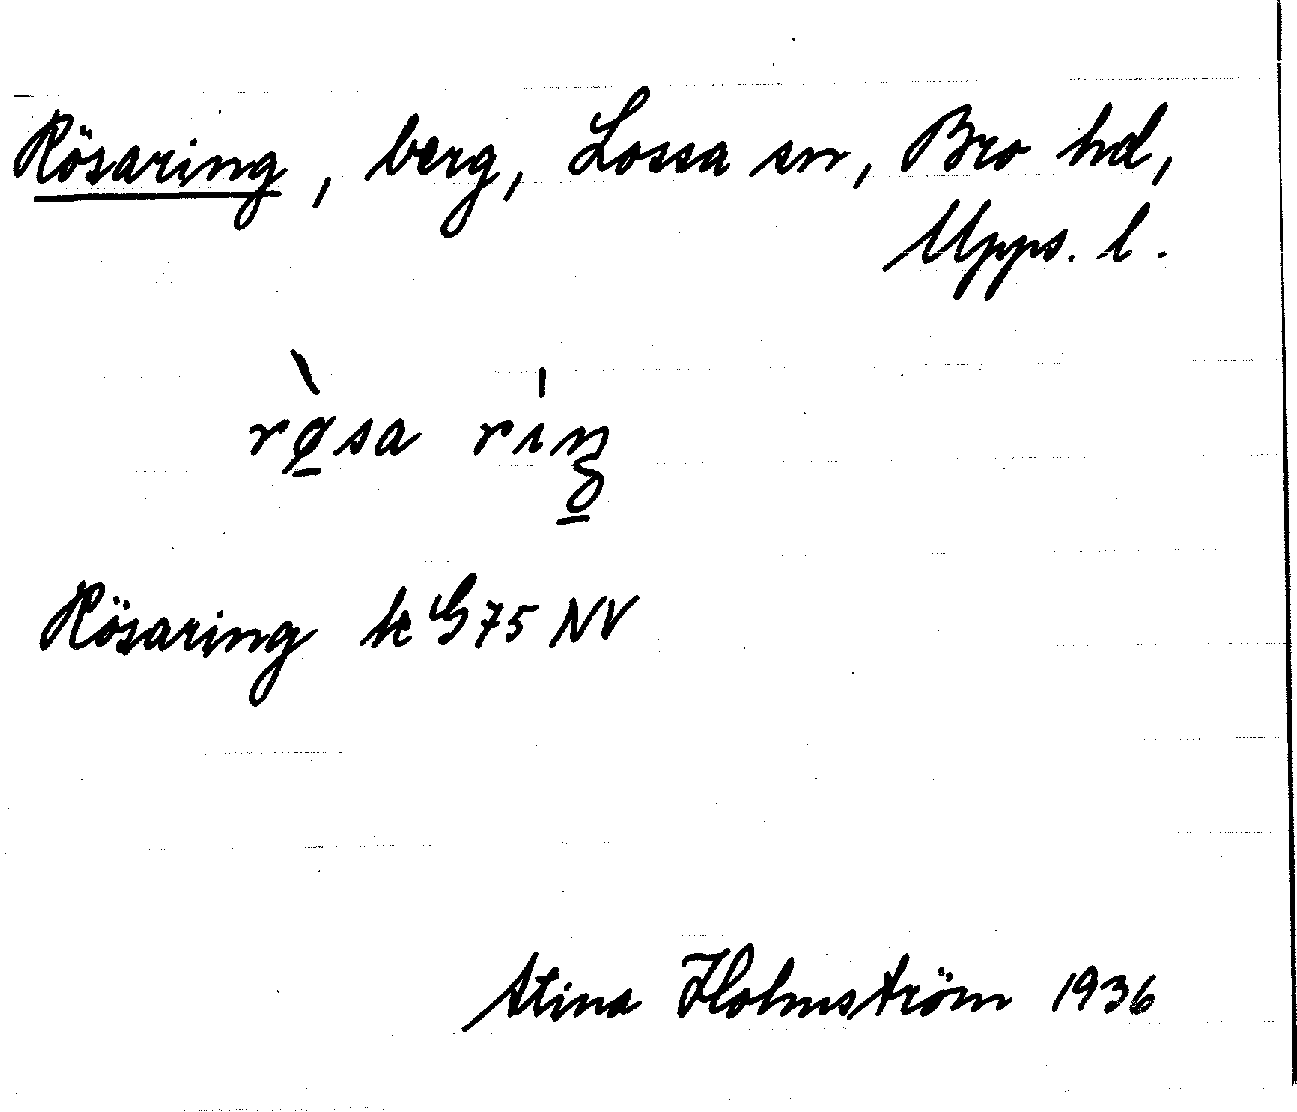 Rösaring, berg, Lossa sn, Bro hd,
Upps. l.
rø̀sa riŋ
Rösaring k G 75 NV
Stina Holmström 1936